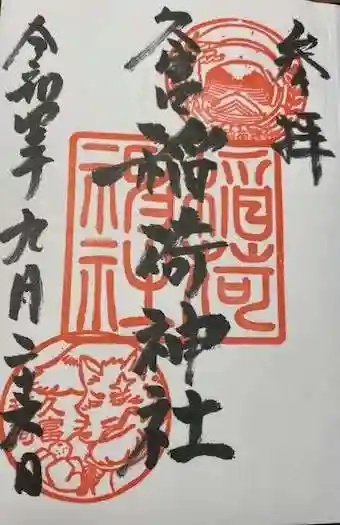 参拝
久富稲荷神社
令和四年九月二十日
稲荷
神社
久富